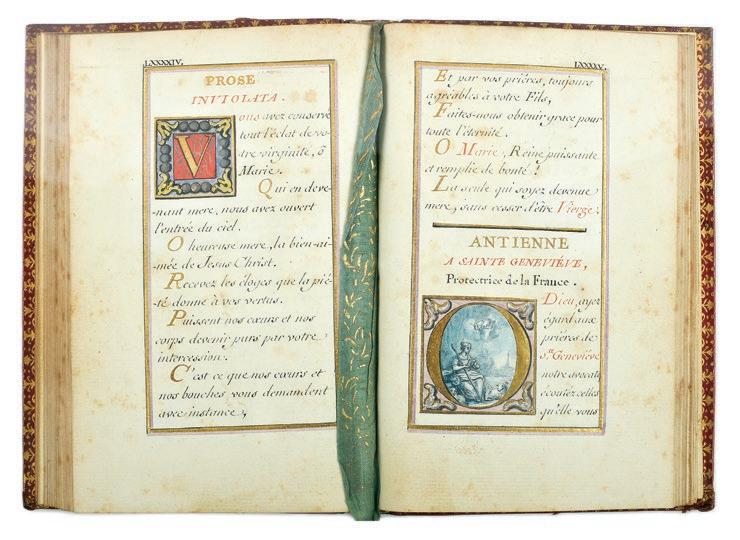 LXXXXIV.
PROSE
INVIOLATA.
Vous avez conservé
tout l'éclat de vo-
-tre virginité, ô
Marie.
Qui en deve-
-nant mere, nous avez ouvert
l'entrée du ciel.
O heureuse mere, la bien-ai-
-mée de Jesus Christ.
Recevez les éloges que la pié-
-té donne à vos vertus.
Puissent nos cœurs et nos
corps devenir purs par votre
intercession.
C'est ce que nos cœurs et
nos bouches vous demandent
avec instance,
LXXXXV.
Et par vos priéres, toujours
agréables à votre Fils,
Faites-nous obtenir grace pour
toute l'éternité.
O Marie, Reine puissante
et remplie de bonté!
La seule qui soyez devenue
mere, sans cesser d'être Vierge.
ANTIENNE
A SAINTE GENEVIÉVE,
Protectrice de la France.
O Dieu, ayez
égard aux
priéres de
S.te Geneviéve
notre avocate,
écoutez celles
qu'elle vous